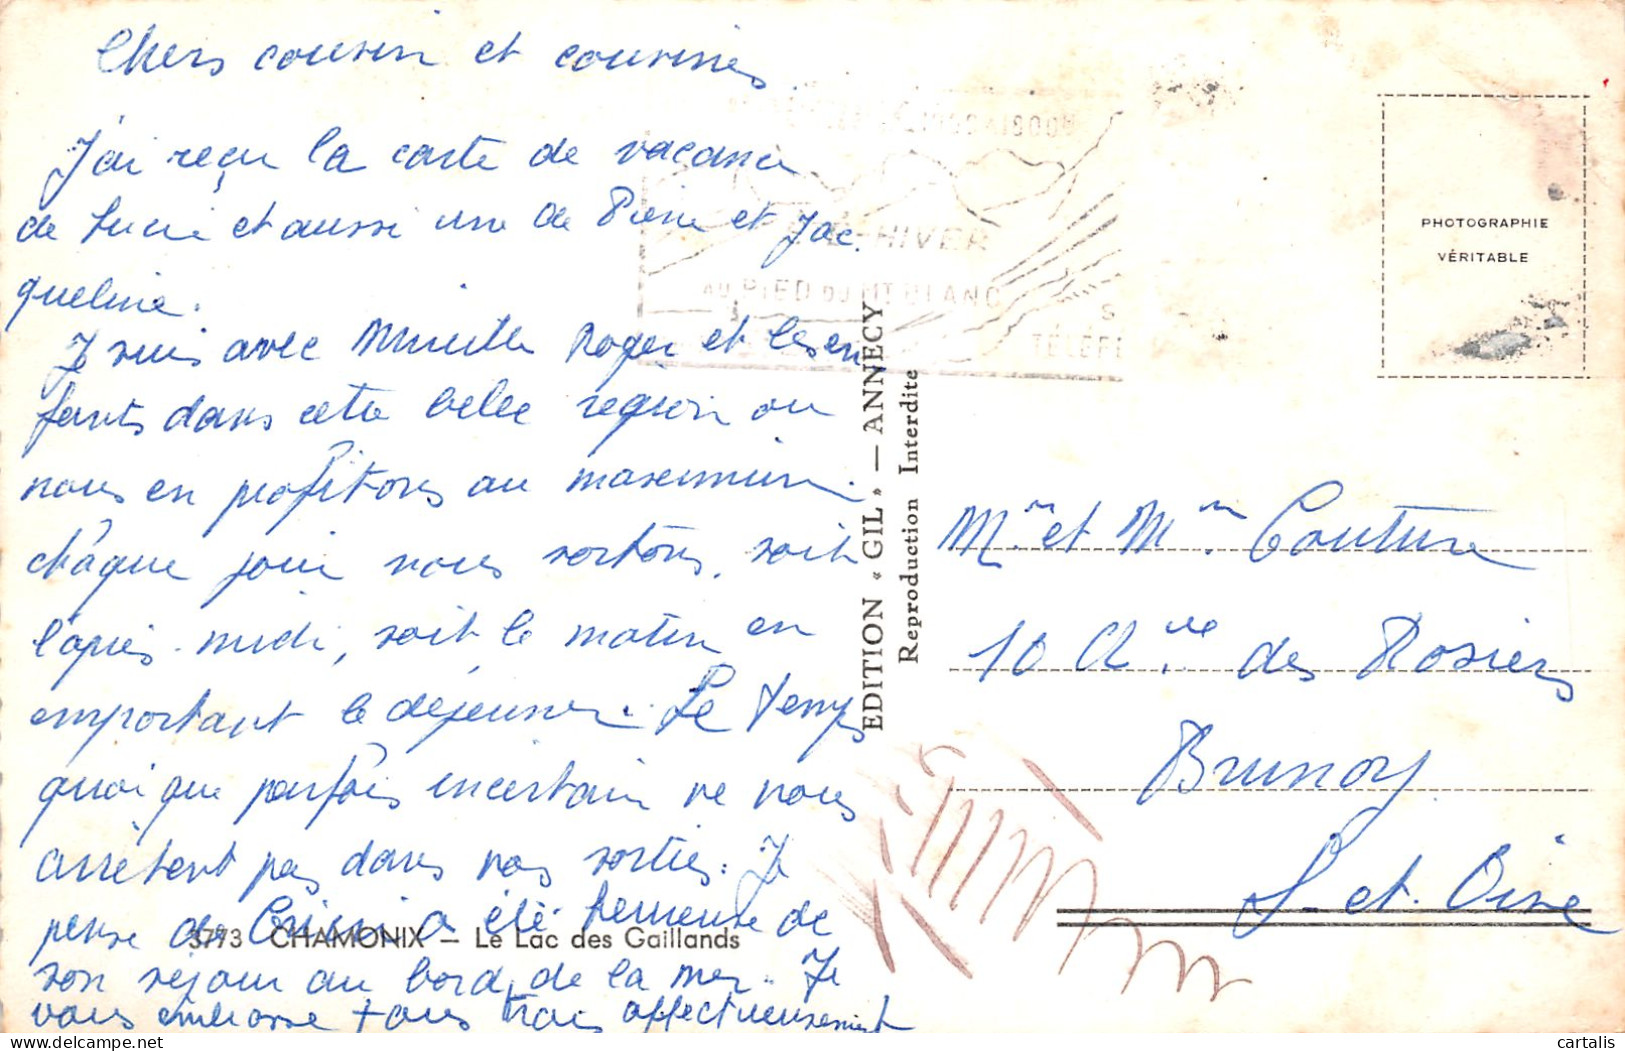 Chers cousin et cousines
J'ai reçu la carte de vacance
de Lucie et aussi une de Pierre et Jac
queline.
Je suis avec Roger et les en
fants dans cette belle region ou
nous en profitons au maximum.
châque jour nous sortons, soit
l'après-midi, soit le matin en
emportant le déjeuner. Le temps
quoique parfois incertain ne nous
arrêtent pas dans nos sorties. Je
pense que a été heureuse de
son séjour au bord de la mer. Je
vous embrasse tous trois affectueusement
3773 CHAMONIX – Le Lac des Gaillands
ÉTÉ-HIVER
AU PIED DU MT BLANC
TÉLÉFÉ
EDITION « GIL » — ANNECY
Reproduction Interdite
PHOTOGRAPHIE
VÉRITABLE
Mr et Mm Couture
10 Avie des Rosiers
Brunoy
S. et. Oise
cartalis